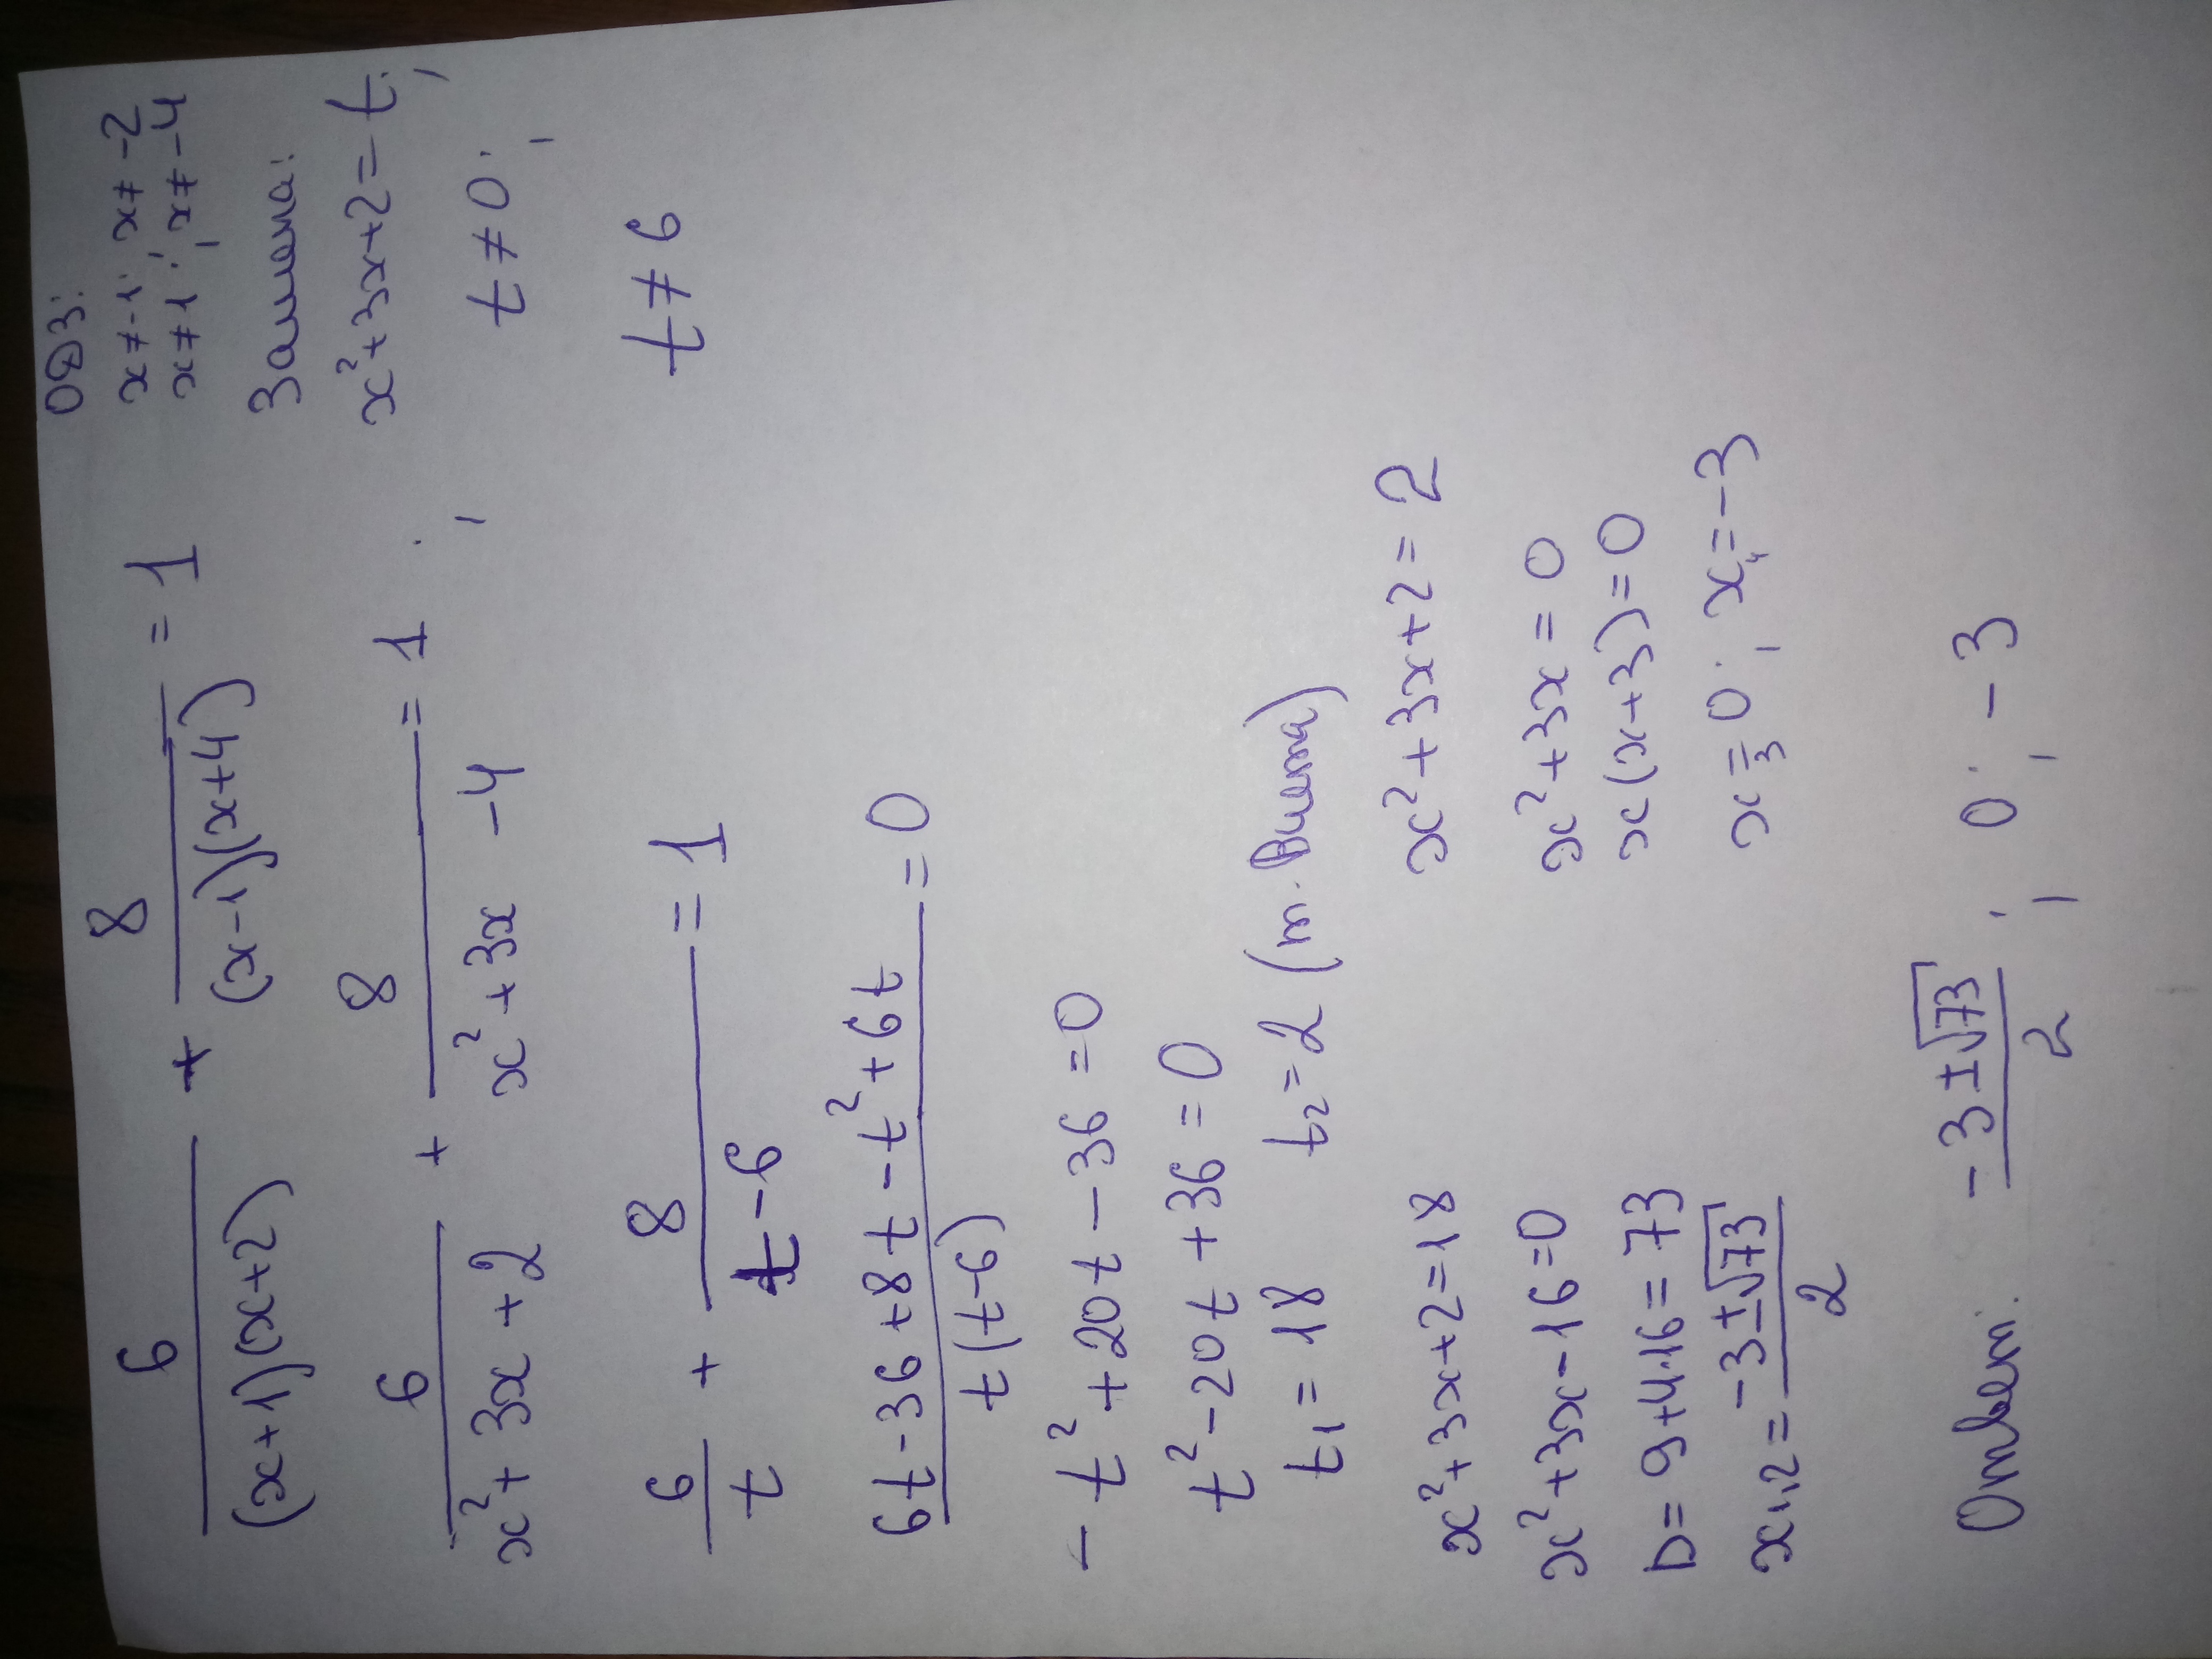 6/((x+1)(x+2)) + 8/((x-1)(x+4)) = 1
ОДЗ:
x≠-1; x≠-2
x≠1; x≠-4
6/(x²+3x+2) + 8/(x²+3x-4) = 1;
Замена:
x²+3x+2=t;
t≠0;
6/t + 8/(t-6) = 1
t≠6
(6t-36+8t-t²+6t)/(t(t-6)) = 0
-t²+20t-36=0
t²-20t+36=0
t₁=18 t₂=2 (т. Виета)
x²+3x+2=18
x²+3x-16=0
D=9+4·16=73
x₁,₂=(-3±√73)/2
x²+3x+2=2
x²+3x=0
x(x+3)=0
x₃=0; x₄=-3
Ответ: (-3±√73)/2; 0; -3